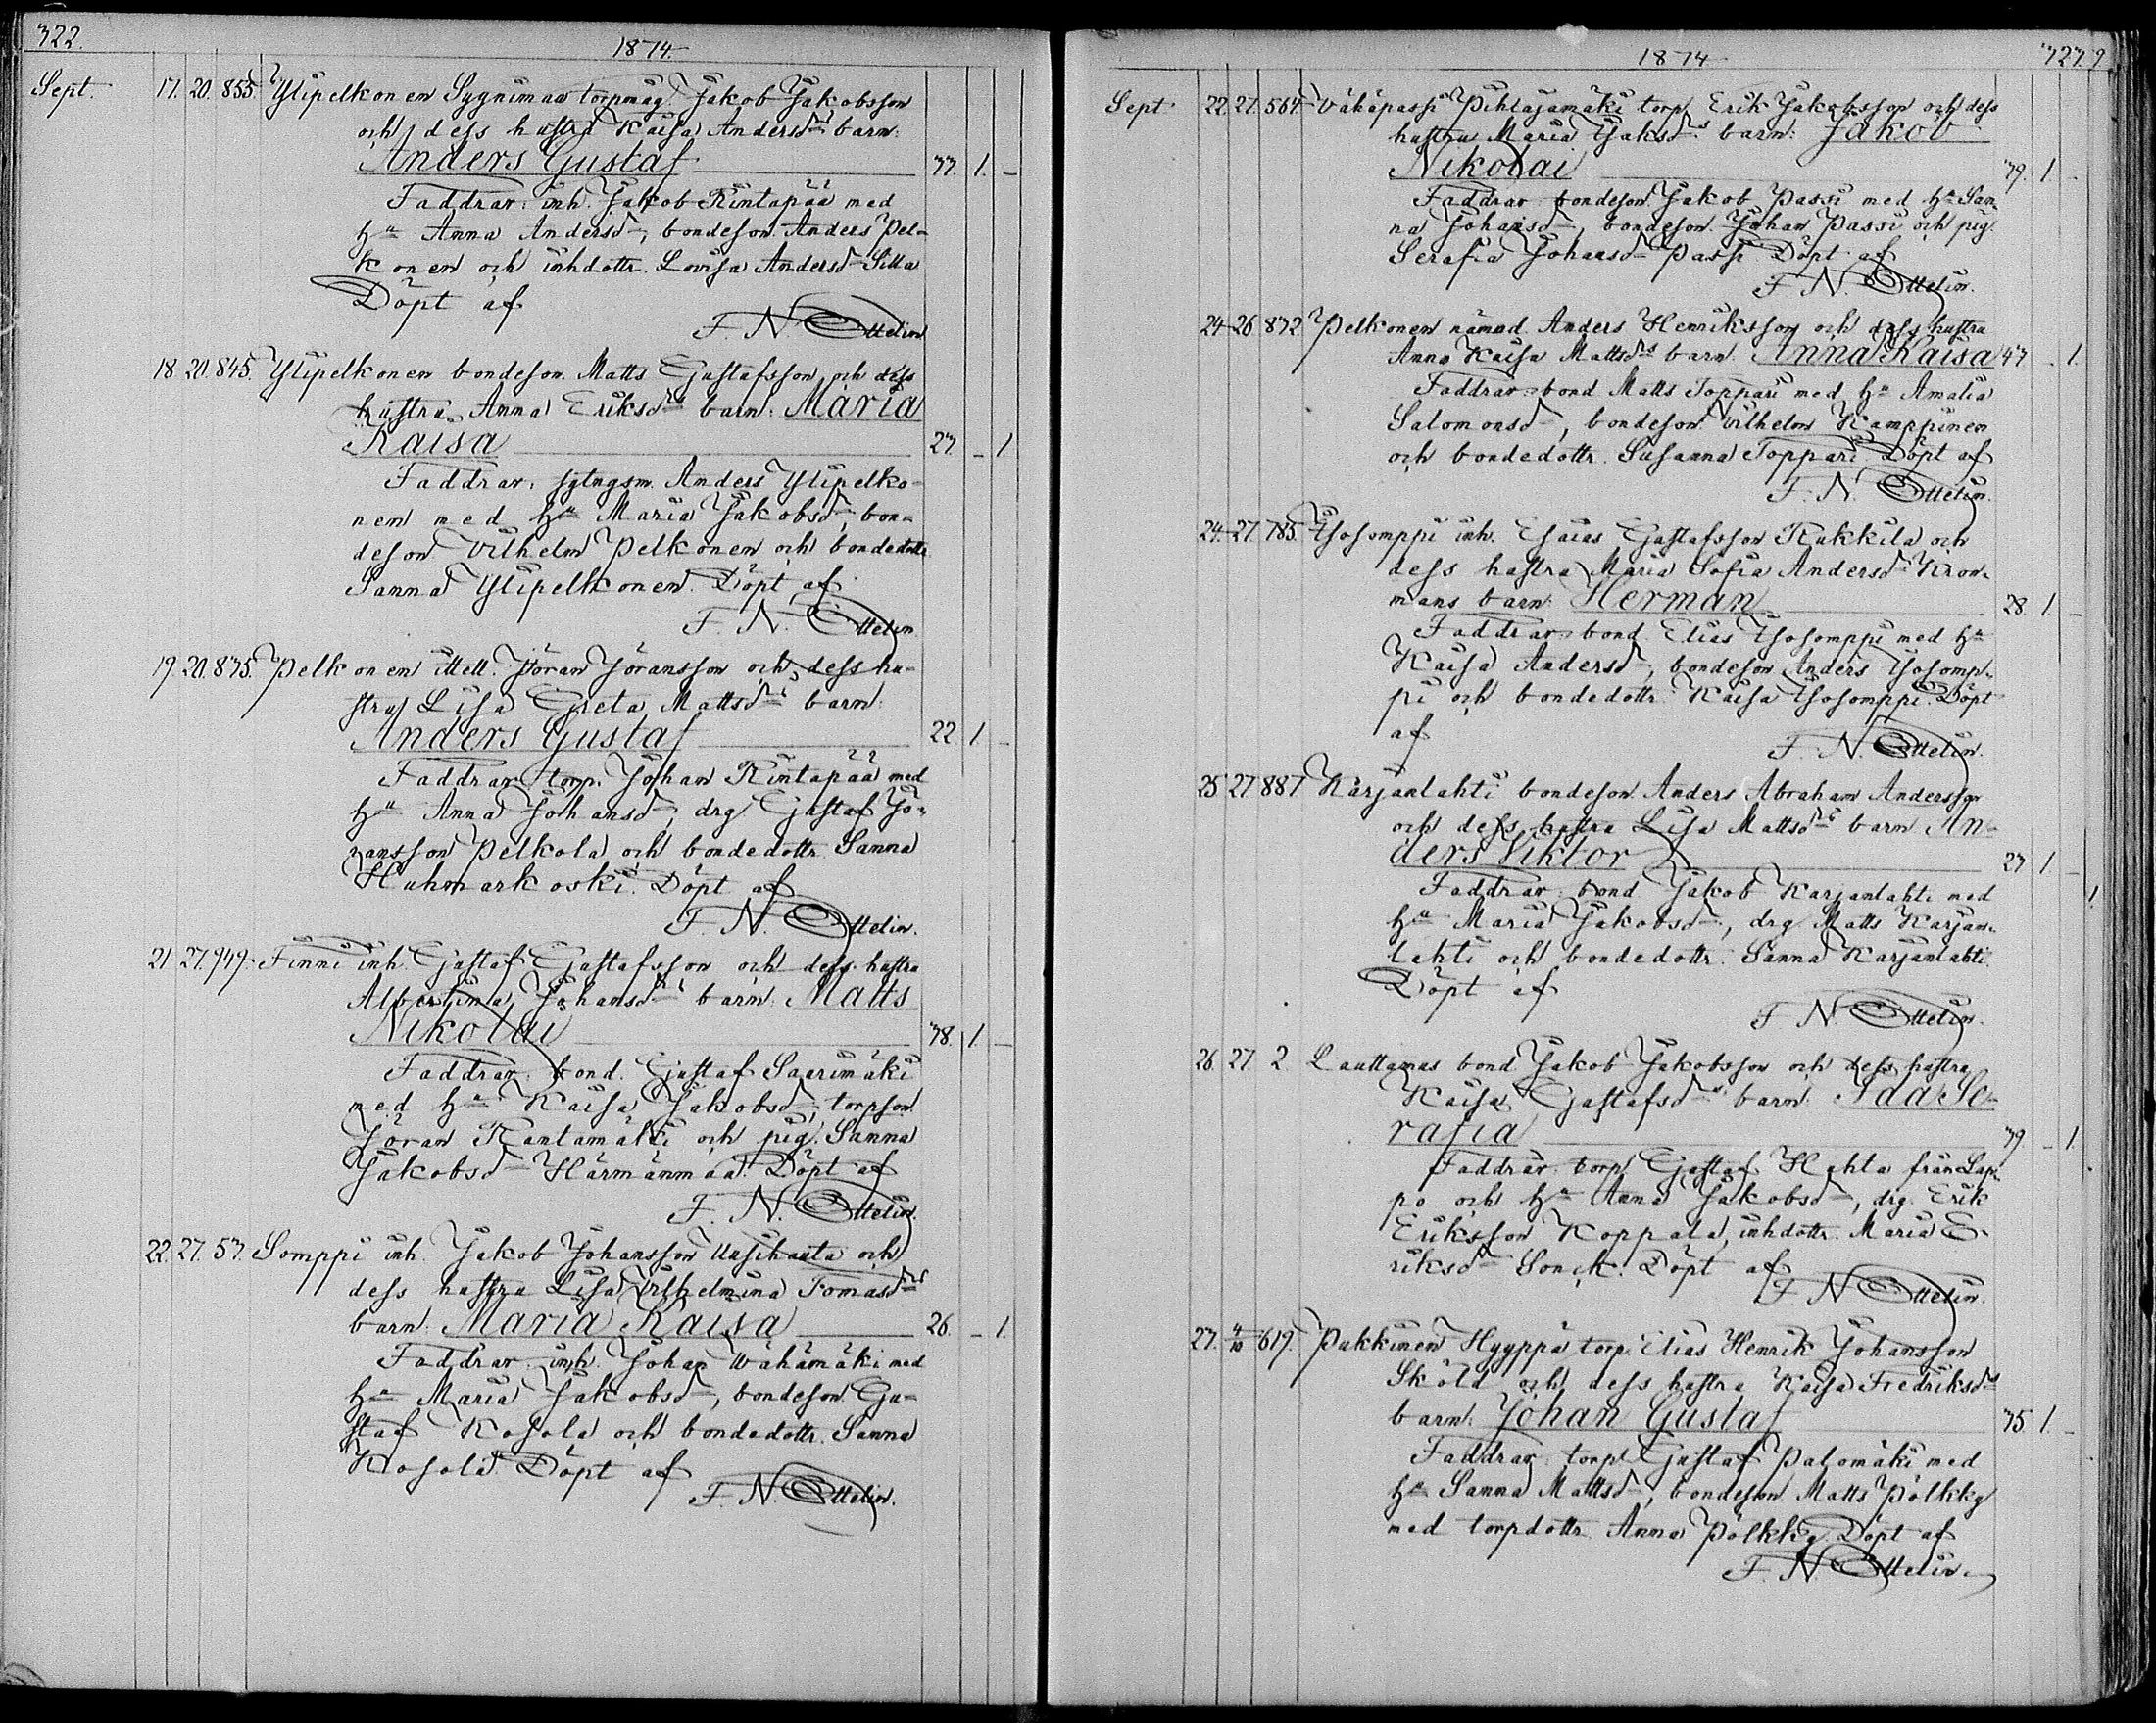 322.
1874.
Sept. 17. 20. 855. Ylipelkonen Sygniman torpmåg Jakob Jakobsson
och dess hustru Kaisa Andersd:rs barn:
Anders Gustaf 33. 1. –
Faddrar: inh. Jakob Rintapää med
h:u Anna Andersd:r, bondeson Anders Pel-
konen och inhdottr. Lovisa Andersd:r Silla
Döpt af
F. N. Ottelin
18. 20. 845. Ylipelkonen bondeson. Matts Gustafsson och dess
hustru Anna Eriksd:rs barn: Maria
Kaisa 27. – 1
Faddrar: sytngsm. Anders Ylipelko-
nen med h:u Maria Jakobsd:r, bon-
deson Vilhelm Pelkonen och bondedottr
Sanna Ylipelkonen. Döpt af
F. N. Ottelin
19. 20. 875. Pelkonen ittell. Jöran Jöransson och dess hu-
stru Lisa Greta Mattsd:rs barn:
Anders Gustaf 22. 1. –
Faddrar torp. Johan Rintapää med
h:u Anna Johansd:r, drg Gustaf Jö-
ransson Pelkola och bondedottr. Sanna
Huhmarkoski. Döpt af
F. N. Ottelin.
21. 27. 949. Finni inh. Gustaf Gustafsson och dess hustru
Albertina Johansd:rs barn: Matts
Nikolai 38. 1. –
Faddrar: bond. Gustaf Saarimäki
med h:u Kaisa Jakobsd:r, torpson
Jöran Rantamäki och pig. Sanna
Jakobsd:r Härmänmaa. Döpt af
F. N. Ottelin.
22. 27. 57. Somppi inh. Jakob Johansson Uusihauta och
dess hustru Lisa Vilhelmina Tomasd:rs
barn: Maria Kaisa 26. – 1.
Faddrar: inh. Johan Wähämäki med
h:u Maria Jakobsd:r, bondeson Gu-
staf Kosola och bondedottr. Sanna
Kosola. Döpt af
F. N. Ottelin.
1874.
Sept. 22. 27. 564. Vähäpassi Pihlajamäki torp. Erik Jakobsson och dess
hustru Maria Jaksd:rs barn: Jakob
Nikolai 39. 1. –
Faddrar bondeson Jakob Passi med h:u San-
na Johansd:r, bondeson Johan Passi och pig.
Serafia Johansd:r Passi Döpt af
F. N. Ottelin.
24. 26. 872. Pelkonen nämnd. Anders Henriksson och dess hustru
Anna Kaisa Mattsd:rs barn. Anna Kaisa 43 – 1.
Faddrar: bond Matts Toppari med h:u Amalia
Salomonsd:r, bondeson Vilhelm Kamppinen
och bondedottr. Susanna Toppari, Döpt af
F. N. Ottelin.
24. 27. 785. Isosomppi inh. Esaias Gustafsson Rukkila och
dess hustru Maria Sofia Andersd:r Kron-
mans barn: Herman 28. 1. –
Faddrar: bond. Elias Isosomppi med h:u
Kaisa Andersd:r, bondeson Anders Isosomp-
pi och bondedottr. Kaisa Isosomppi. Döpt
af
F. N. Ottelin.
25. 27. 887. Karjanlahti bondeson. Anders Abraham Andersson
och dess hustru Lisa Mattsd:rs barn An-
ders Viktor 27 1. –
Faddrar: bond. Jakob Karjanlahti med
h:u Maria Jakobsd:r, drg Matts Karjan-
lahti och bondedottr. Sanna Karjanlahti.
Döpt af
F. N. Ottelin.
26. 27. 2. Lauttamus bond Jakob Jakobsson och dess hustru
Kaisa Gustafsd:rs barn: Ida Se-
rafia 39. – 1.
Faddrar: torp. Gustaf Hahta från Lap-
po och h:u Anna Jakobsd:r, drg. Erik
Eriksson Koppala, inhdottr. Maria E-
riksd:r Sonck. Döpt af
F. N. Ottelin.
27. 4/10 619. Pukkinen Hyyppä torp. Elias Henrik Johansson
Sköld och dess hustru Kaisa Fredriksd:rs
barn: Johan Gustaf 35. 1. –
Faddrar: torp. Gustaf Palomäki med
h:u Sanna Mattsd:r, bondeson Matts Pölkky
med torpdottr. Anna Pölkky Döpt af
F. N. Ottelin.